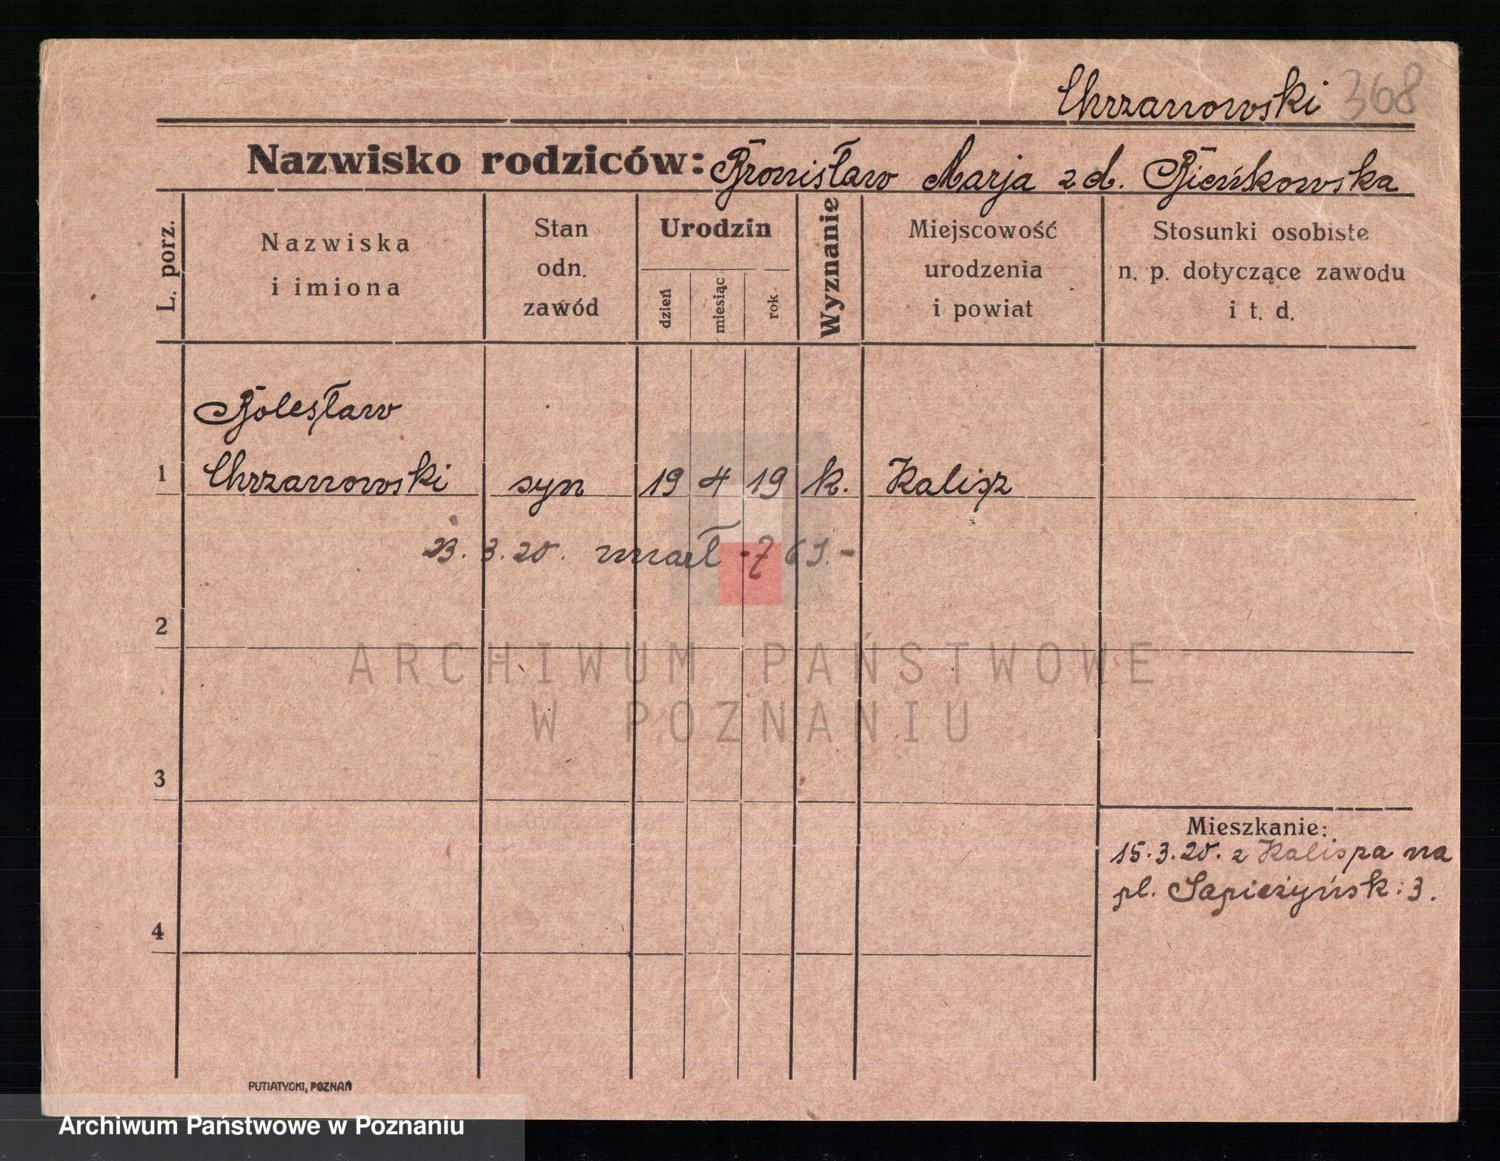 Chrzanowski 368
Nazwisko rodziców: Bronisław Marja z d. Bieńkowska
L. porz.
Nazwiska
i imiona
Stan
odn.
zawód
Urodzin
dzień
miesiąc
rok
Wyznanie
Miejscowość
urodzenia
i powiat
Stosunki osobiste
n. p. dotyczące zawodu
i t. d.
Bolesław
1 Chrzanowski syn 19 4 19 k. Kalisz
23. 3. 20. umarł
2
ARCHIWUM PAŃSTWOWE
W POZNANIU
3
Mieszkanie:
15. 3. 20. z Kalisza na
pl. Sapieżyńsk: 3.
4
PUTIATYCKI, POZNAŃ
Archiwum Państwowe w Poznaniu